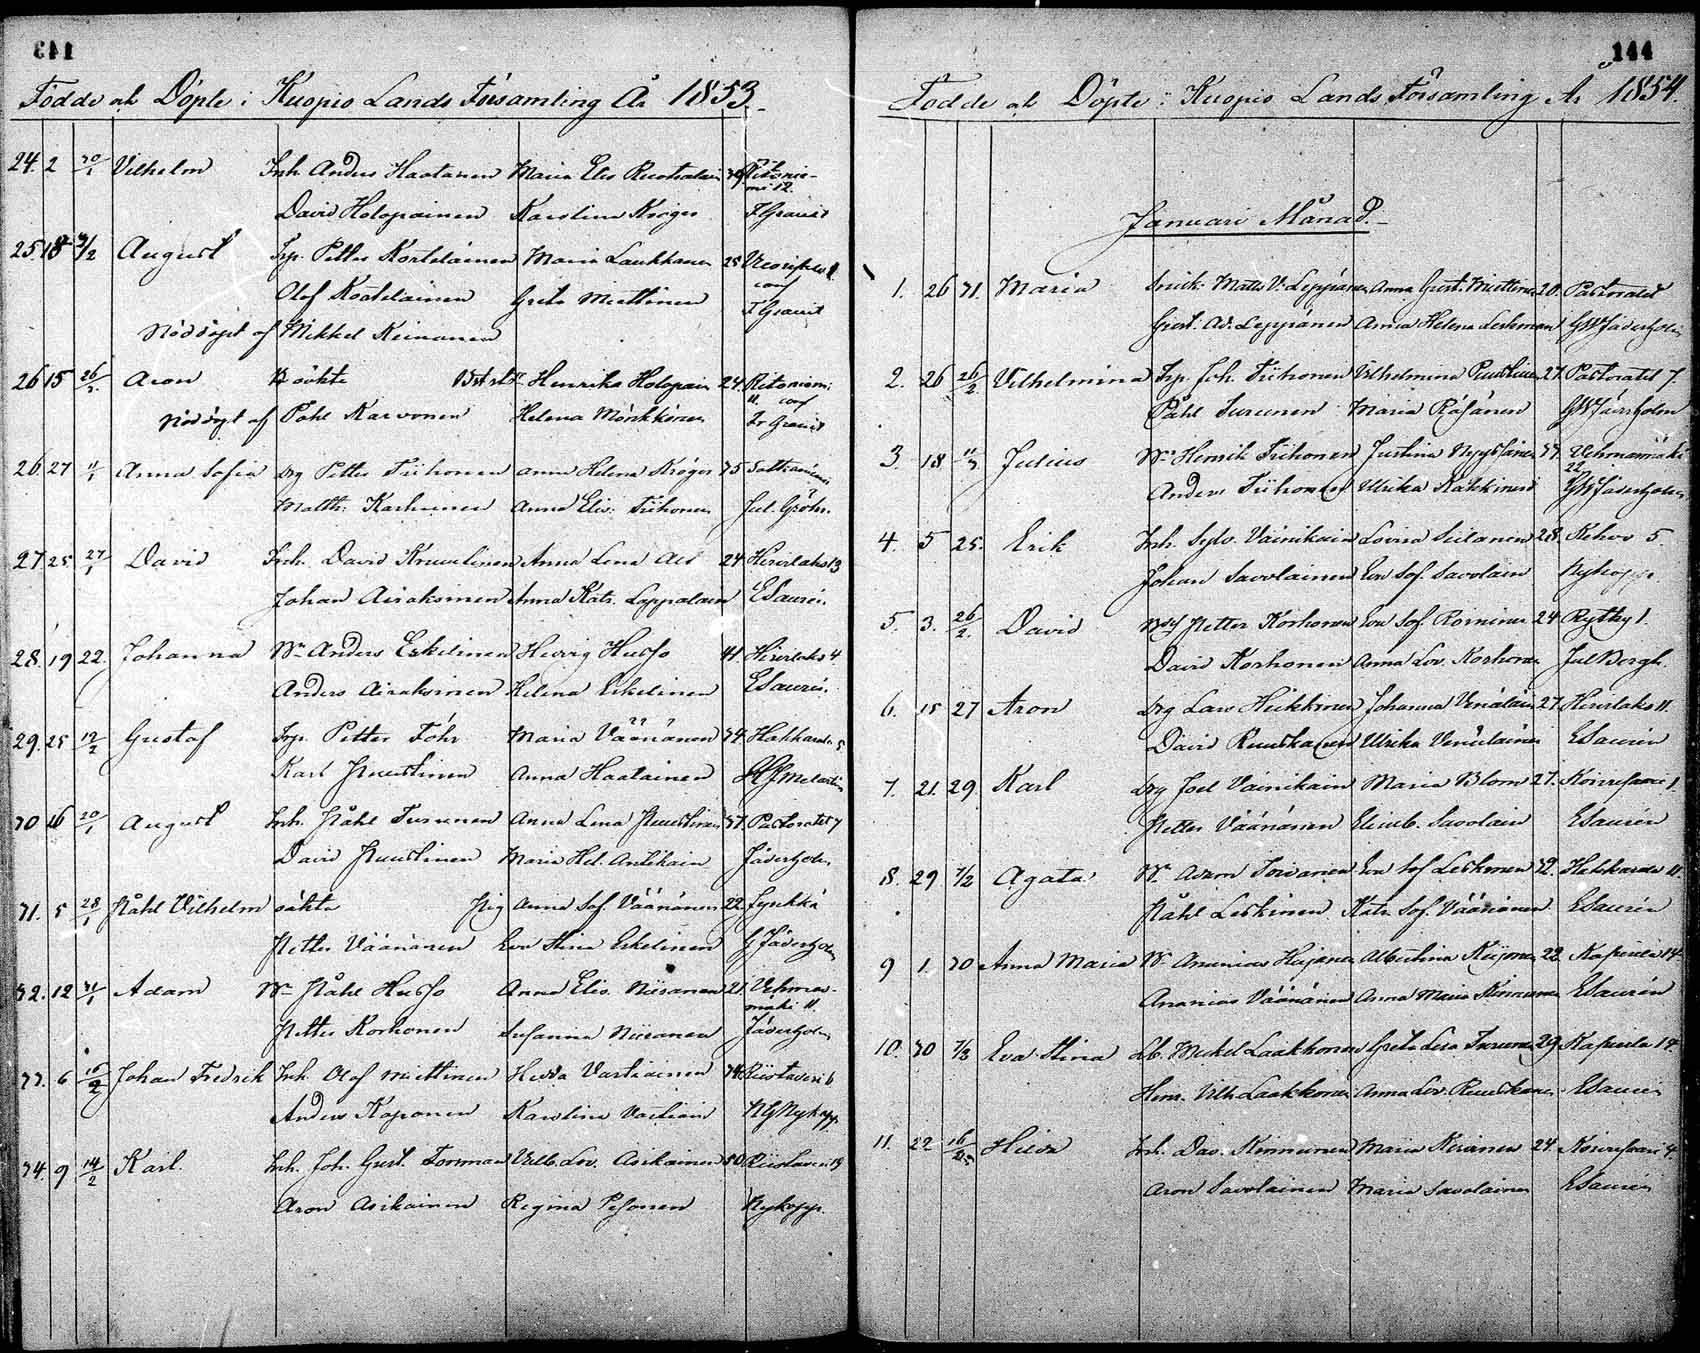 143
Födde och Döpte i Kuopio Lands Församling År 1853.
24. 2 30/1 Vilhelm Inh. Anders Haatanen Maria Elis 12.
David Holopainen Karolina Kröger F Granit
25. 18 2/2 August Trp. Petter Kortelainen Maria Laukkanen 25
Olof Kortelainen Greta Miettinen F Granit
Nöddöpt af Mikkel Keinanen
26 15 26/2 Aron Oäkta Henrika Holopain 24. Ritoniemi 11.
Nöddöpt af Påhl Karvonen Helena Mönkkönen Fr Granit
26 27 11/1 Anna Sofia Drg Petter Tiihonen Anna Helena Kröger 35
Matth. Karhunen Anna Elis. Tiihonen Jul. Gröhn.
27 25 27/1 David Inh. David Kruuelinen Anna Lena 24 Hirvilaks 13
Johan Airaksinen Anna Katr. Lappalain E Saurén.
28. 19 22. Johanna Anders Eskelinen Hedvig Husso 41 Hirvilaks 4
Anders Airaksinen Helena Eskelinen E Saurén.
29. 25 12/2 Gustaf Trp. Petter Föhr Maria Väänänen 34 5
Karl Puustinen Anna Haatainen
30 16 20/1 August Inh. Påhl Turunen Anna Lena Puustinen 31 Pastoratet 7
David Puustinen Maria Hel. Antikain Jäderholm
31. 5 28/1 Påhl Vilhelm oäkta Pig Anna Sof. Väänänen 22
Petter Väänänen Eva Stina Eskelinen G Jäderholm
32. 12 31/1 Adam Påhl Husso Anna Elis. Niiranen 21 Vehmas-
mäki 11.
Petter Korhonen Susanna Niiranen Jäderholm
33. 6 Johan Fredrik Inh. Olof Miettinen Hedda Vartiainen 34 Riistaveri 6
Anders Koponen Karolina Vartiain
34. 9 14/2 Karl. Inh. Joh. Gust. Forsman Vilh. Lov. Asikainen 30
Aron Asikainen Regina Pesonen Nykopp.
144
Födde och Döpte i Kuopio Lands Församling År 1854.
Januari Månad.
1. 26 31. Maria Matts V. Leppänen Anna Gust. Miettinen 20. Pastoratet
Gust. Ad. Leppänen Anna Helena Leskinen GW Jäderholm
2. 26 26/2 Vilhelmina Trp. Joh. Tiihonen Vilhelmina Puustinen 27. Pastoratet 7.
Påhl Turunen Maria Räsänen GW Jäderholm
3. 18 11/3 Julius Henrik Tiihonen Justina Nyyssönen 37. Vehmasmäki
22
Anders Tiihonen Ulrika Kakkinen GW Jäderholm
4. 5 25. Erik Inh. Sylv. Väinikain Lovisa Siilanen 28. Kehvo 5.
Johan Savolainen Eva Sof. Savolain Nykopp.
5. 3. 26/2. David Petter Korhonen Eva Sof. Roininen 24 Rytky 1.
David Korhonen Anna Lov. Korhonen Jul Bergh.
6. 15 27 Aron Drg Lars Heikkinen Johanna Venäläin 27. Hirvilaks 11.
David Ruuskanen Ulrika Venäläinen E Saurén
7. 21. 29. Karl Drg Joel Väinikain Maria Blom 27. Koivusaari 1
Petter Väänänen Elisab. Savolain E Saurén
8. 29 7/2 Agata Adam Toivanen Eva Sof Leskinen 32. 11.
Påhl Leskinen Katr. Sof. Väänänen E Saurén
9 1. 30 Anna Maria Ananias Hujanen Albertina Kujanen 22. Kasurila 14
Ananias Väänänen Anna Maria Kinnunen E Saurén
10. 30 7/3 Eva Stina Mickel Laakkonen Greta Lisa Turunen 29. Kasurila 14.
Henr. Vilh. Laakkonen Anna Lov. Ruuskanen E Saurén
11. 22 Hilda Inh. Dav. Kinnunen Maria Keinänen 24. Koivusaari 4.
Aron Savolainen Maria Savolainen E Saurén